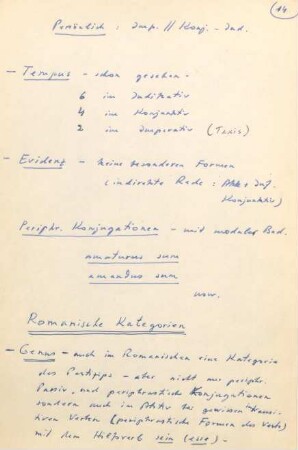 14.
Persönlich : Imp. // Konj. - Ind.
- Tempus - schon gesehen -
6 im Indikativ
4 im Konjunktiv
2 im Imperativ (Taxis)
- Evidenz - keine besonderen Formen
(indirekte Rede : Akk + Inf.
Konjunktiv)
Periphr. Konjugationen - mit modaler Bed.
amaturus sum
amandus sum
usw.
Romanische Kategorien
- Genus - auch im Romanischen eine Kategorie
des Partizips - aber nicht nur periphr.
Passiv und periphrastische Konjugationen
sondern auch im Aktiv bei gewissen intransi-
tiven Verben (periphrastische Formen des Verbs)
mit dem Hilfsverb sein (esse) -